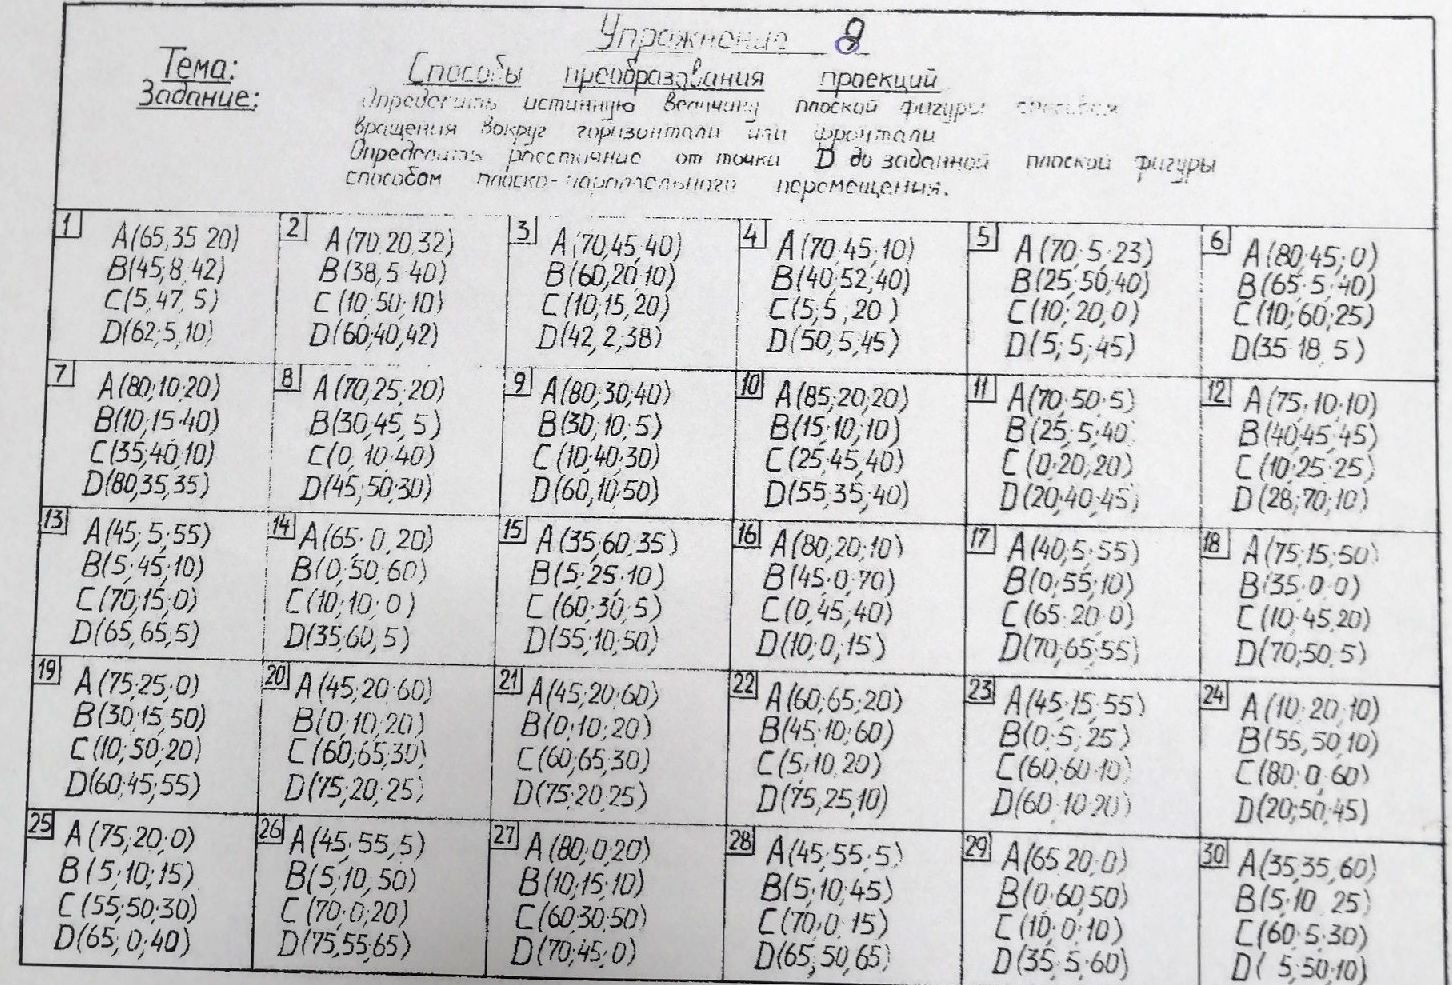 Упражнение 8
Тема: Способы преобразования проекций
Задание: Определить истинную величину плоской фигуры способом
вращения вокруг горизонтали или фронтали
Определить расстояние от точки D до заданной плоской фигуры
способом плоско-параллельного перемещения.
1 A(65,35 20)
B(45,8,42)
C(5,47,5)
D(62;5,10)
2 A(70,20,32)
B(38,5 40)
C(10;50;10)
D(60;40,42)
3 A(70,45,40)
B(60,20;10)
C(10;15,20)
D(42,2,38)
4 A(70,45;10)
B(40;52,40)
C(5;5,20)
D(50,5,45)
5 A(70;5;23)
B(25;50,40)
C(10;20,0)
D(5;5;45)
6 A(80;45;0)
B(65;5,40)
C(10;60;25)
D(35 18,5)
7 A(80;10;20)
B(10;15;40)
C(35;40;10)
D(80,35,35)
8 A(70,25;20)
B(30,45,5)
C(0,10;40)
D(45;50;30)
9 A(80;30;40)
B(30;10;5)
C(10;40;30)
D(60,10;50)
10 A(85;20;20)
B(15;10;10)
C(25;45,40)
D(55,35;40)
11 A(70;50;5)
B(25;5;40
C(0;20;20)
D(20;40;45)
12 A(75;10;10)
B(40;45;45)
C(10;25;25)
D(28;70;10)
13 A(45;5;55)
B(5;45;10)
C(70;15;0)
D(65,65,5)
14 A(65;0,20)
B(0;50,60)
C(10;10;0)
D(35;60,5)
15 A(35;60;35)
B(5;25;10)
C(60;30,5)
D(55;10;50)
16 A(80;20;10)
B(45;0;70)
C(0,45,40)
D(10;0,15)
17 A(40,5;55)
B(0;55;10)
C(65;20 0)
D(70;65;55)
18 A(75;15;50)
B(35;0;0)
C(10;45,20)
D(70;50,5)
19 A(75;25;0)
B(30;15,50)
C(10;50;20)
D(60;45;55)
20 A(45;20 60)
B(0;10;20)
C(60;65;30)
D(75;20;25)
21 A(45;20;60)
B(0;10;20)
C(60;65,30)
D(75;20 25)
22 A(60;65;20)
B(45;10;60)
C(5;10 20)
D(75,25,10)
23 A(45,15;55)
B(0;5;25)
C(60;60;10)
D(60;10;20)
24 A(10;20;10)
B(55,50;10)
C(80;0;60)
D(20;50;45)
25 A(75;20;0)
B(5;10;15)
C(55;50;30)
D(65;0;40)
26 A(45;55,5)
B(5;10,50)
C(70;0;20)
D(75,55;65)
27 A(80;0;20)
B(10;15;10)
C(60;30;50)
D(70;45;0)
28 A(45;55;5)
B(5;10;45)
C(70;0;15)
D(65,50,65)
29 A(65 20;0)
B(0;60;50)
C(10;0;10)
D(35;5;60)
30 A(35,35,60)
B(5;10 25)
C(60;5;30)
D(5;50;10)